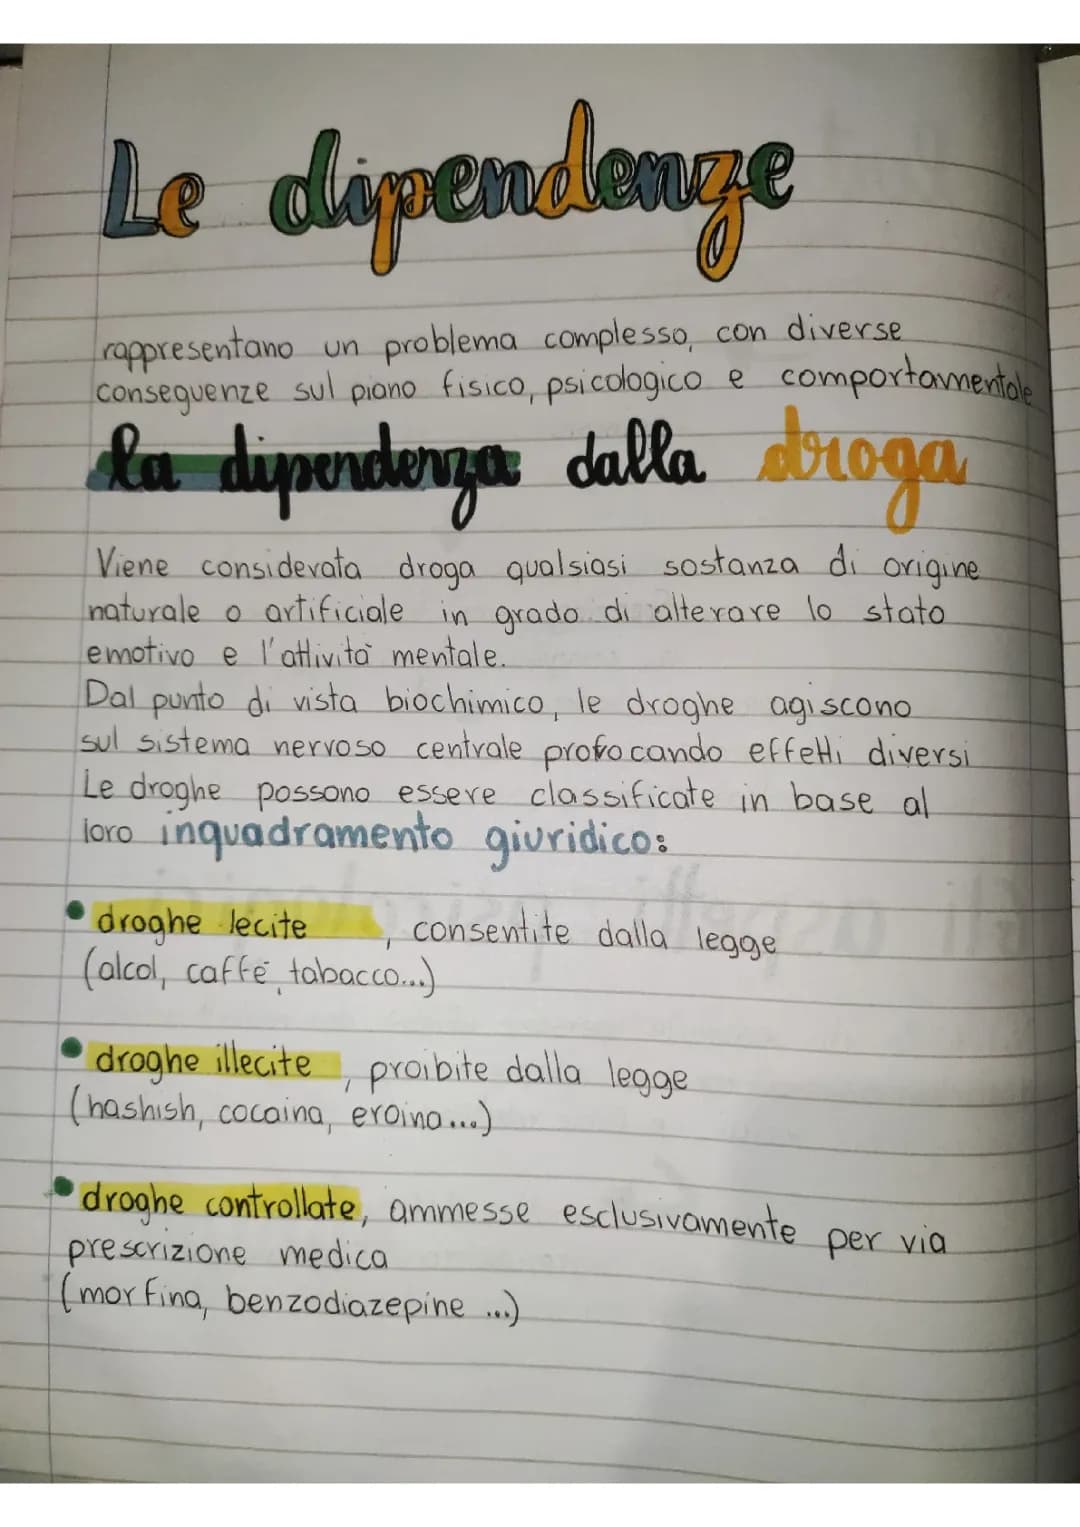 Le dipendenze
rappresentano un problema complesso, con diverse
conseguenze sul piano fisico, psicologico e comportamentale
la dipendenza dalla droga
Viene considerata droga qualsiasi sostanza di origine
naturale o artificiale in grado di alterare lo stato
emotivo e l'attività mentale.
Dal punto di vista biochimico, le droghe agiscono
sul sistema nervoso centrale provocando effetti diversi
Le droghe possono essere classificate in base al
loro inquadramento giuridico:
• droghe lecite, consentite dalla legge
(alcol, caffè, tabacco...)
• droghe illecite, proibite dalla legge
(hashish, cocaina, eroina...)
• droghe controllate, ammesse esclusivamente per via
prescrizione medica
(morfina, benzodiazepine ...)